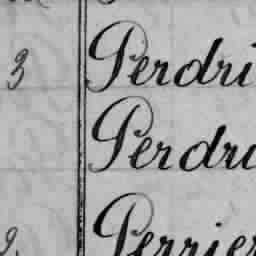 3 Perdri
Perdri
Perrier